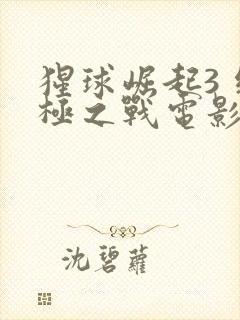 猩球崛起3
極之戰電影
沈碧蘿